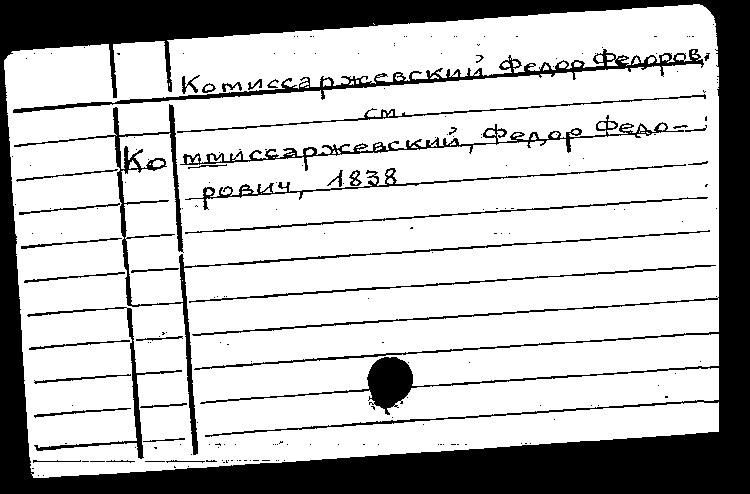 Комиссаржевский Федор Федоров.
см.
Коммиссаржевский, Федор Федо-
рович, 1838